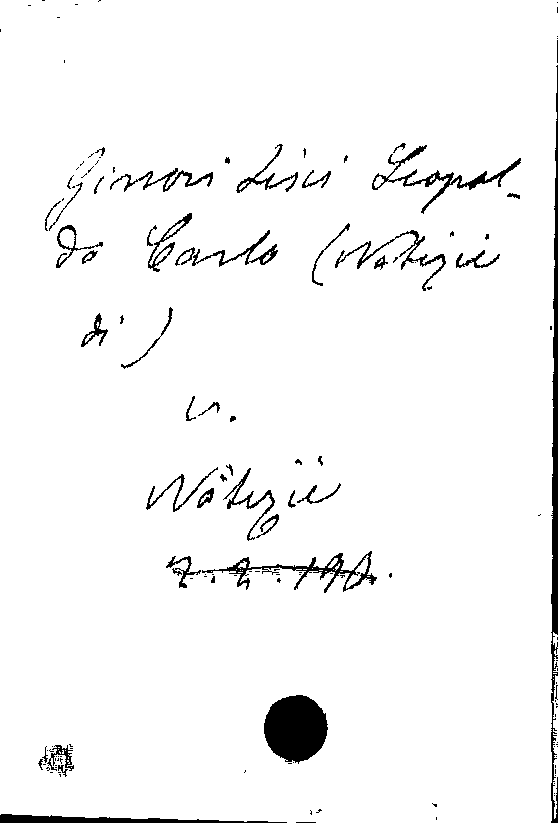 Ginori Lisci Leopol-
do Carlo (Notizie
di)
v.
Notizie
7.2.198.